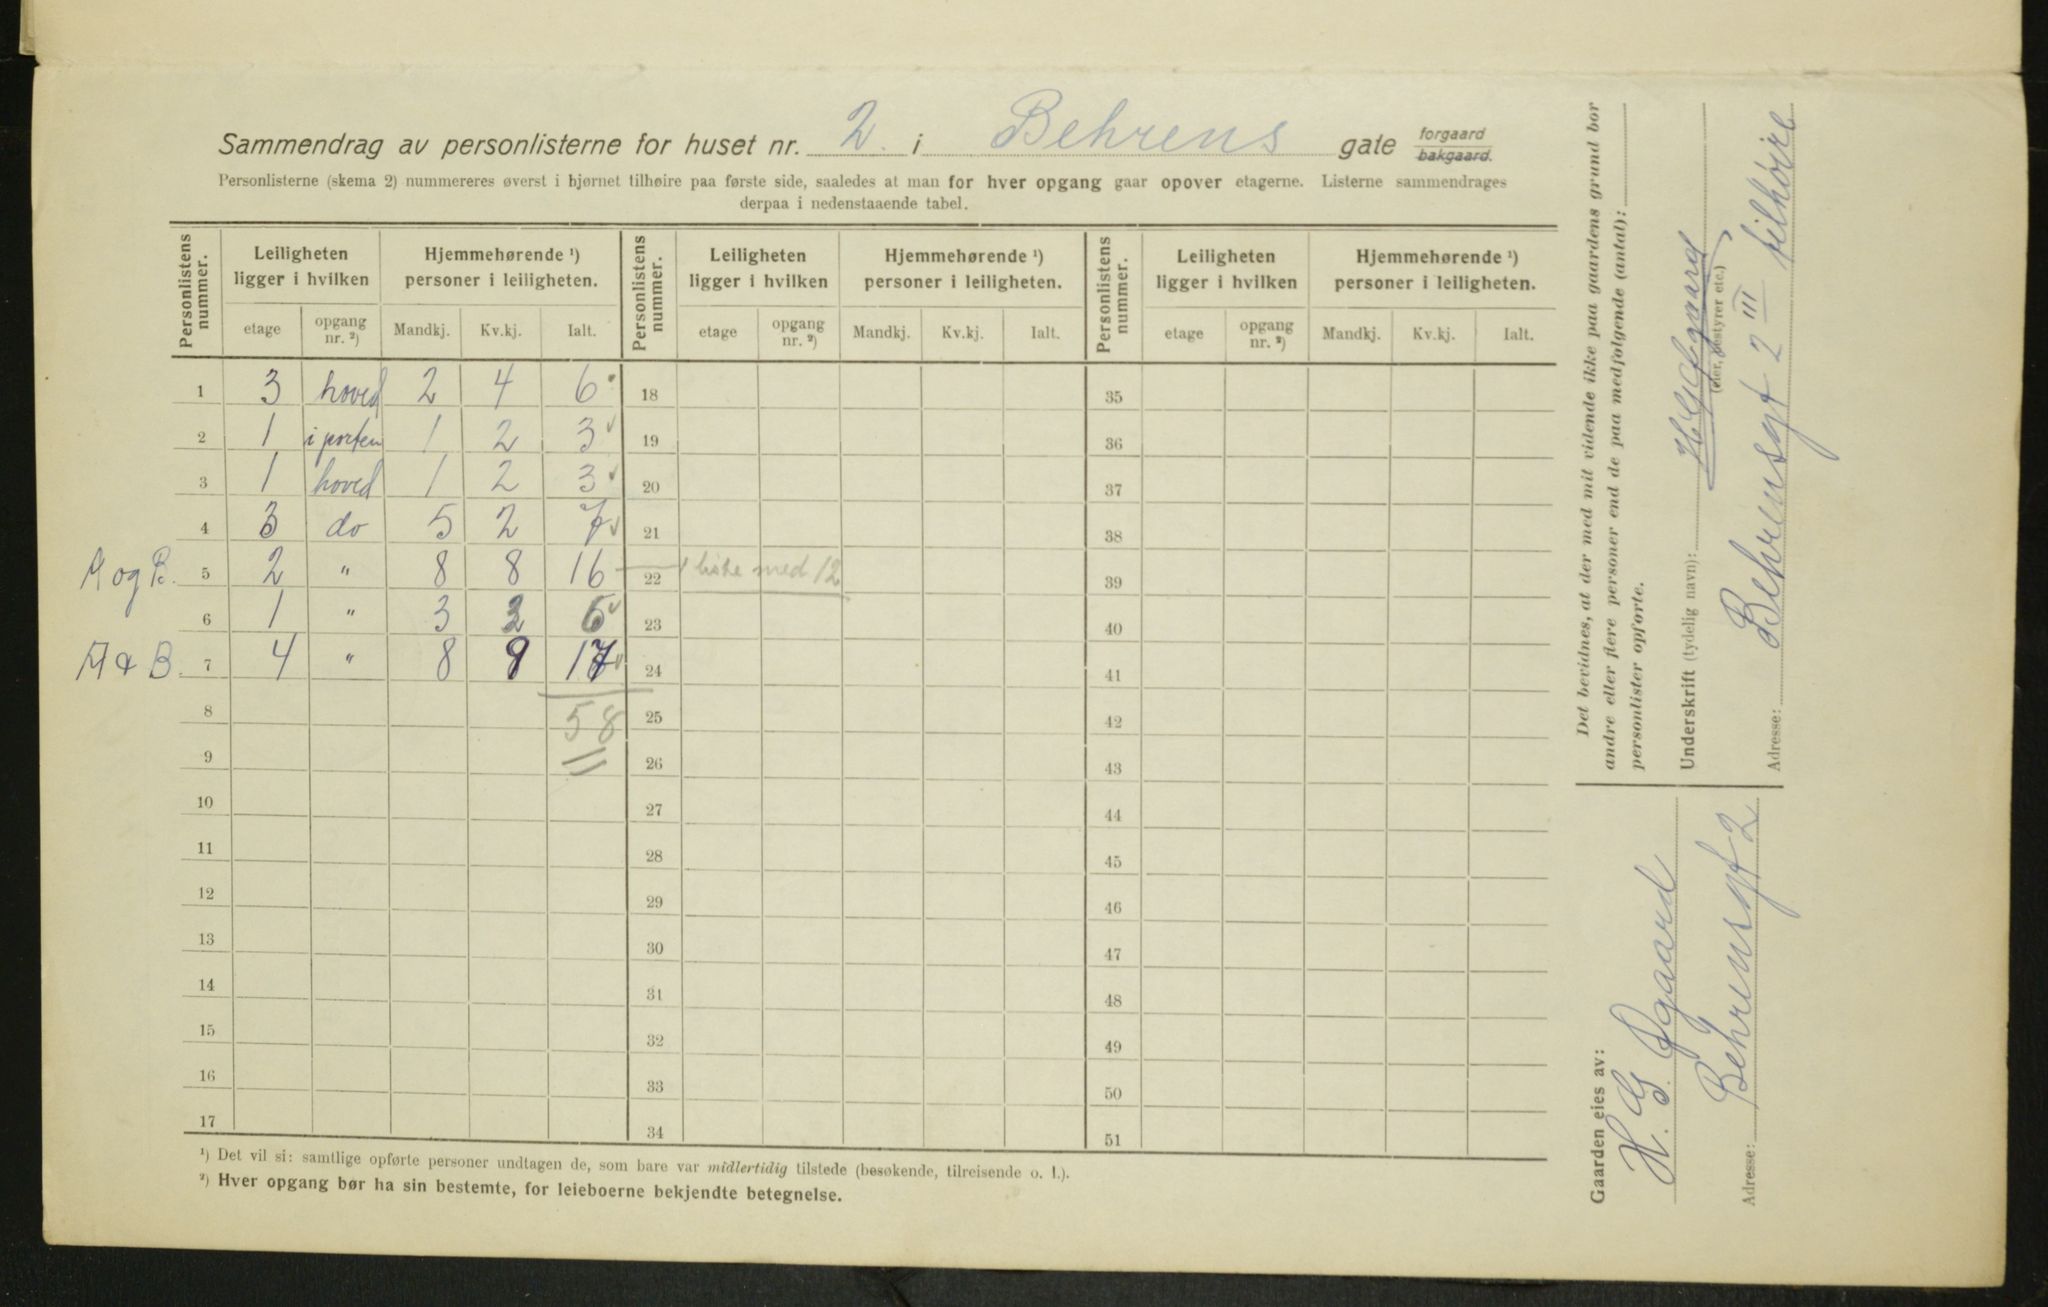 Sammendrag av personlisterne for huset nr. 2. i Behrens gate forgaard bakgaard.
Personlisterne (skema 2) nummereres øverst i hjørnet tilhøire paa første side, saaledes at man for hver opgang gaar opover etagerne. Listerne sammendrages
derpaa i nedenstaaende tabel.
Personlistens nummer. Leiligheten ligger i hvilken Hjemmehørende ¹) personer i leiligheten. Personlistens nummer. Leiligheten ligger i hvilken Hjemmehørende ¹) personer i leiligheten. Personlistens nummer. Leiligheten ligger i hvilken Hjemmehørende ¹) personer i leiligheten.
etage opgang nr. ²) Mandkj. Kv.kj. Ialt. etage opgang nr. ²) Mandkj. Kv.kj. Ialt. etage opgang nr. ²) Mandkj. Kv.kj. Ialt.
1 3 hoved 2 4 6 18 35
2 1 i porten 1 2 3 19 36
3 1 hoved 1 2 3 20 37
4 3 do 5 2 7 21 38
A og B. 5 2 " 8 8 16 22 1 liste med 12 39
6 1 " 3 23 40
A & B. 7 4 " 8 9 17 24 41
8 58 25 42
9 26 43
10 27 44
11 28 45
12 29 46
13 30 47
14 31 48
15 32 49
16 33 50
17 34 51
¹) Det vil si: samtlige opførte personer undtagen de, som bare var midlertidig tilstede (besøkende, tilreisende o. l.).
²) Hver opgang bør ha sin bestemte, for leieboerne bekjendte betegnelse.
Det bevidnes, at der med mit vidende ikke paa gaardens grund bor
andre eller flere personer end de paa medfølgende (antal):
personlister opførte.
Underskrift (tydelig navn): H. G. Øgaard
(eier, bestyrer etc.)
Adresse: Behrensgt 2 III tilhøire
Gaarden eies av:
H. G. Øgaard
Adresse: Behrensgt 2